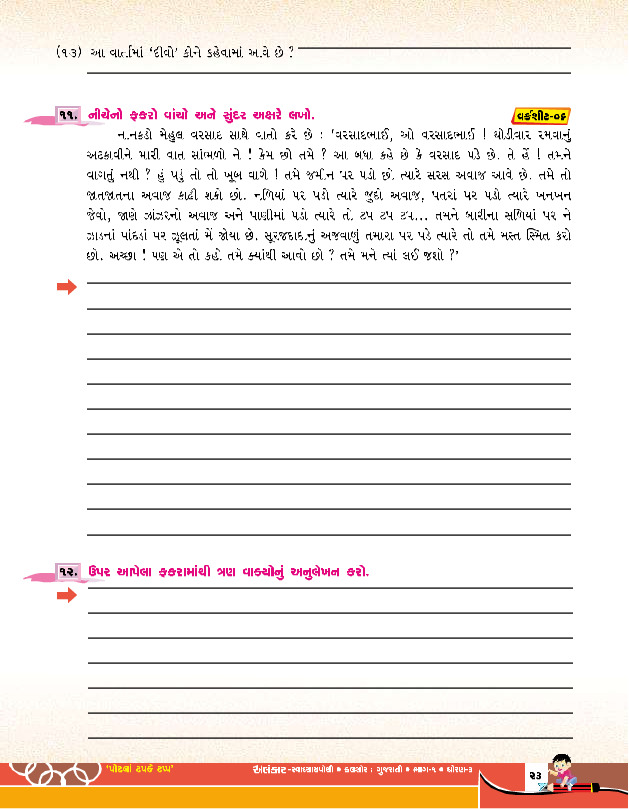 (૧૩) આ વાર્તામાં ‘દીવો’ કોને કહેવામાં આવે છે ?
૧૧. નીચેનો ફકરો વાંચો અને સુંદર અક્ષરે લખો.
વર્કશીટ-૦૬
નાનકડો મેહુલ વરસાદ સાથે વાતો કરે છે : ‘વરસાદભાઈ, ઓ વરસાદભાઈ ! થોડીવાર રમવાનું
અટકાવીને મારી વાત સાંભળો ને ! કેમ છો તમે ? આ બધા કહે છે કે વરસાદ પડે છે. તે હેં ! તમને
વાગતું નથી ? હું પડું તો તો ખૂબ વાગે ! તમે જમીન પર પડો છો. ત્યારે સરસ અવાજ આવે છે. તમે તો
જાતજાતના અવાજ કાઢી શકો છો. નળિયાં પર પડો ત્યારે જુદો અવાજ, પતરાં પર પડો ત્યારે ખનખન
જેવો, જાણે ઝાંઝરનો અવાજ અને પાણીમાં પડો ત્યારે તો ટપ ટપ ટપ... તમને બારીના સળિયા પર ને
ઝાડનાં પાંદડાં પર ઝૂલતાં મેં જોયા છે. સૂરજદાદાનું અજવાળું તમારા પર પડે ત્યારે તો તમે મસ્ત સ્મિત કરો
છો. અચ્છા ! પણ એ તો કહો તમે ક્યાંથી આવો છો ? તમે મને ત્યાં લઈ જશો ?’
૧૨. ઉપર આપેલા ફકરામાંથી ત્રણ વાક્યોનું અનુલેખન કરો.
‘પોટલાં ટપકે ટપ્પ’
અલંકાર-સ્વાધ્યાયપોથી • કલશોર : ગુજરાતી • ભાગ-૧ • ધોરણ-૩
૨૩